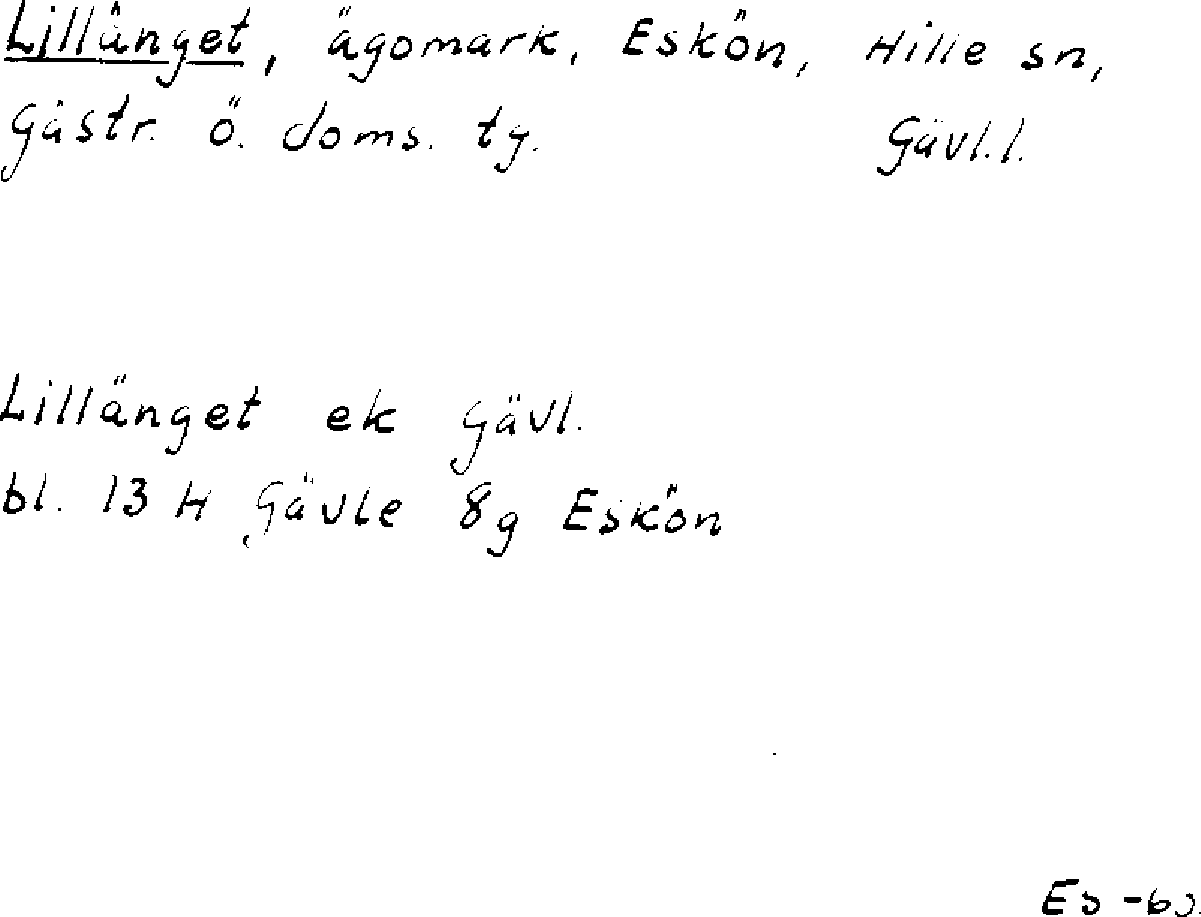 Lillänget, ägomark, Eskön, Hille sn,
Gästr. ö. doms. tg. Gävl.l.
Lillänget ek Gävl.
bl. 13 H Gävle 8g Eskön